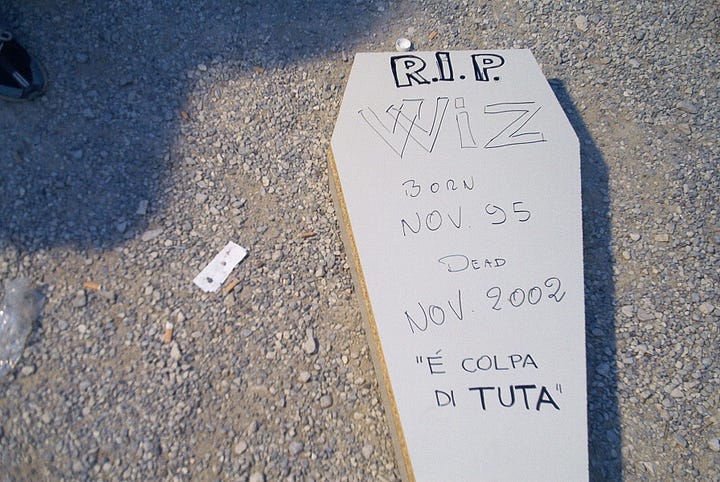 R.I.P.
WiZ
BORN
NOV. 95
DEAD
NOV. 2002
"É COLPA
DI TUTA"